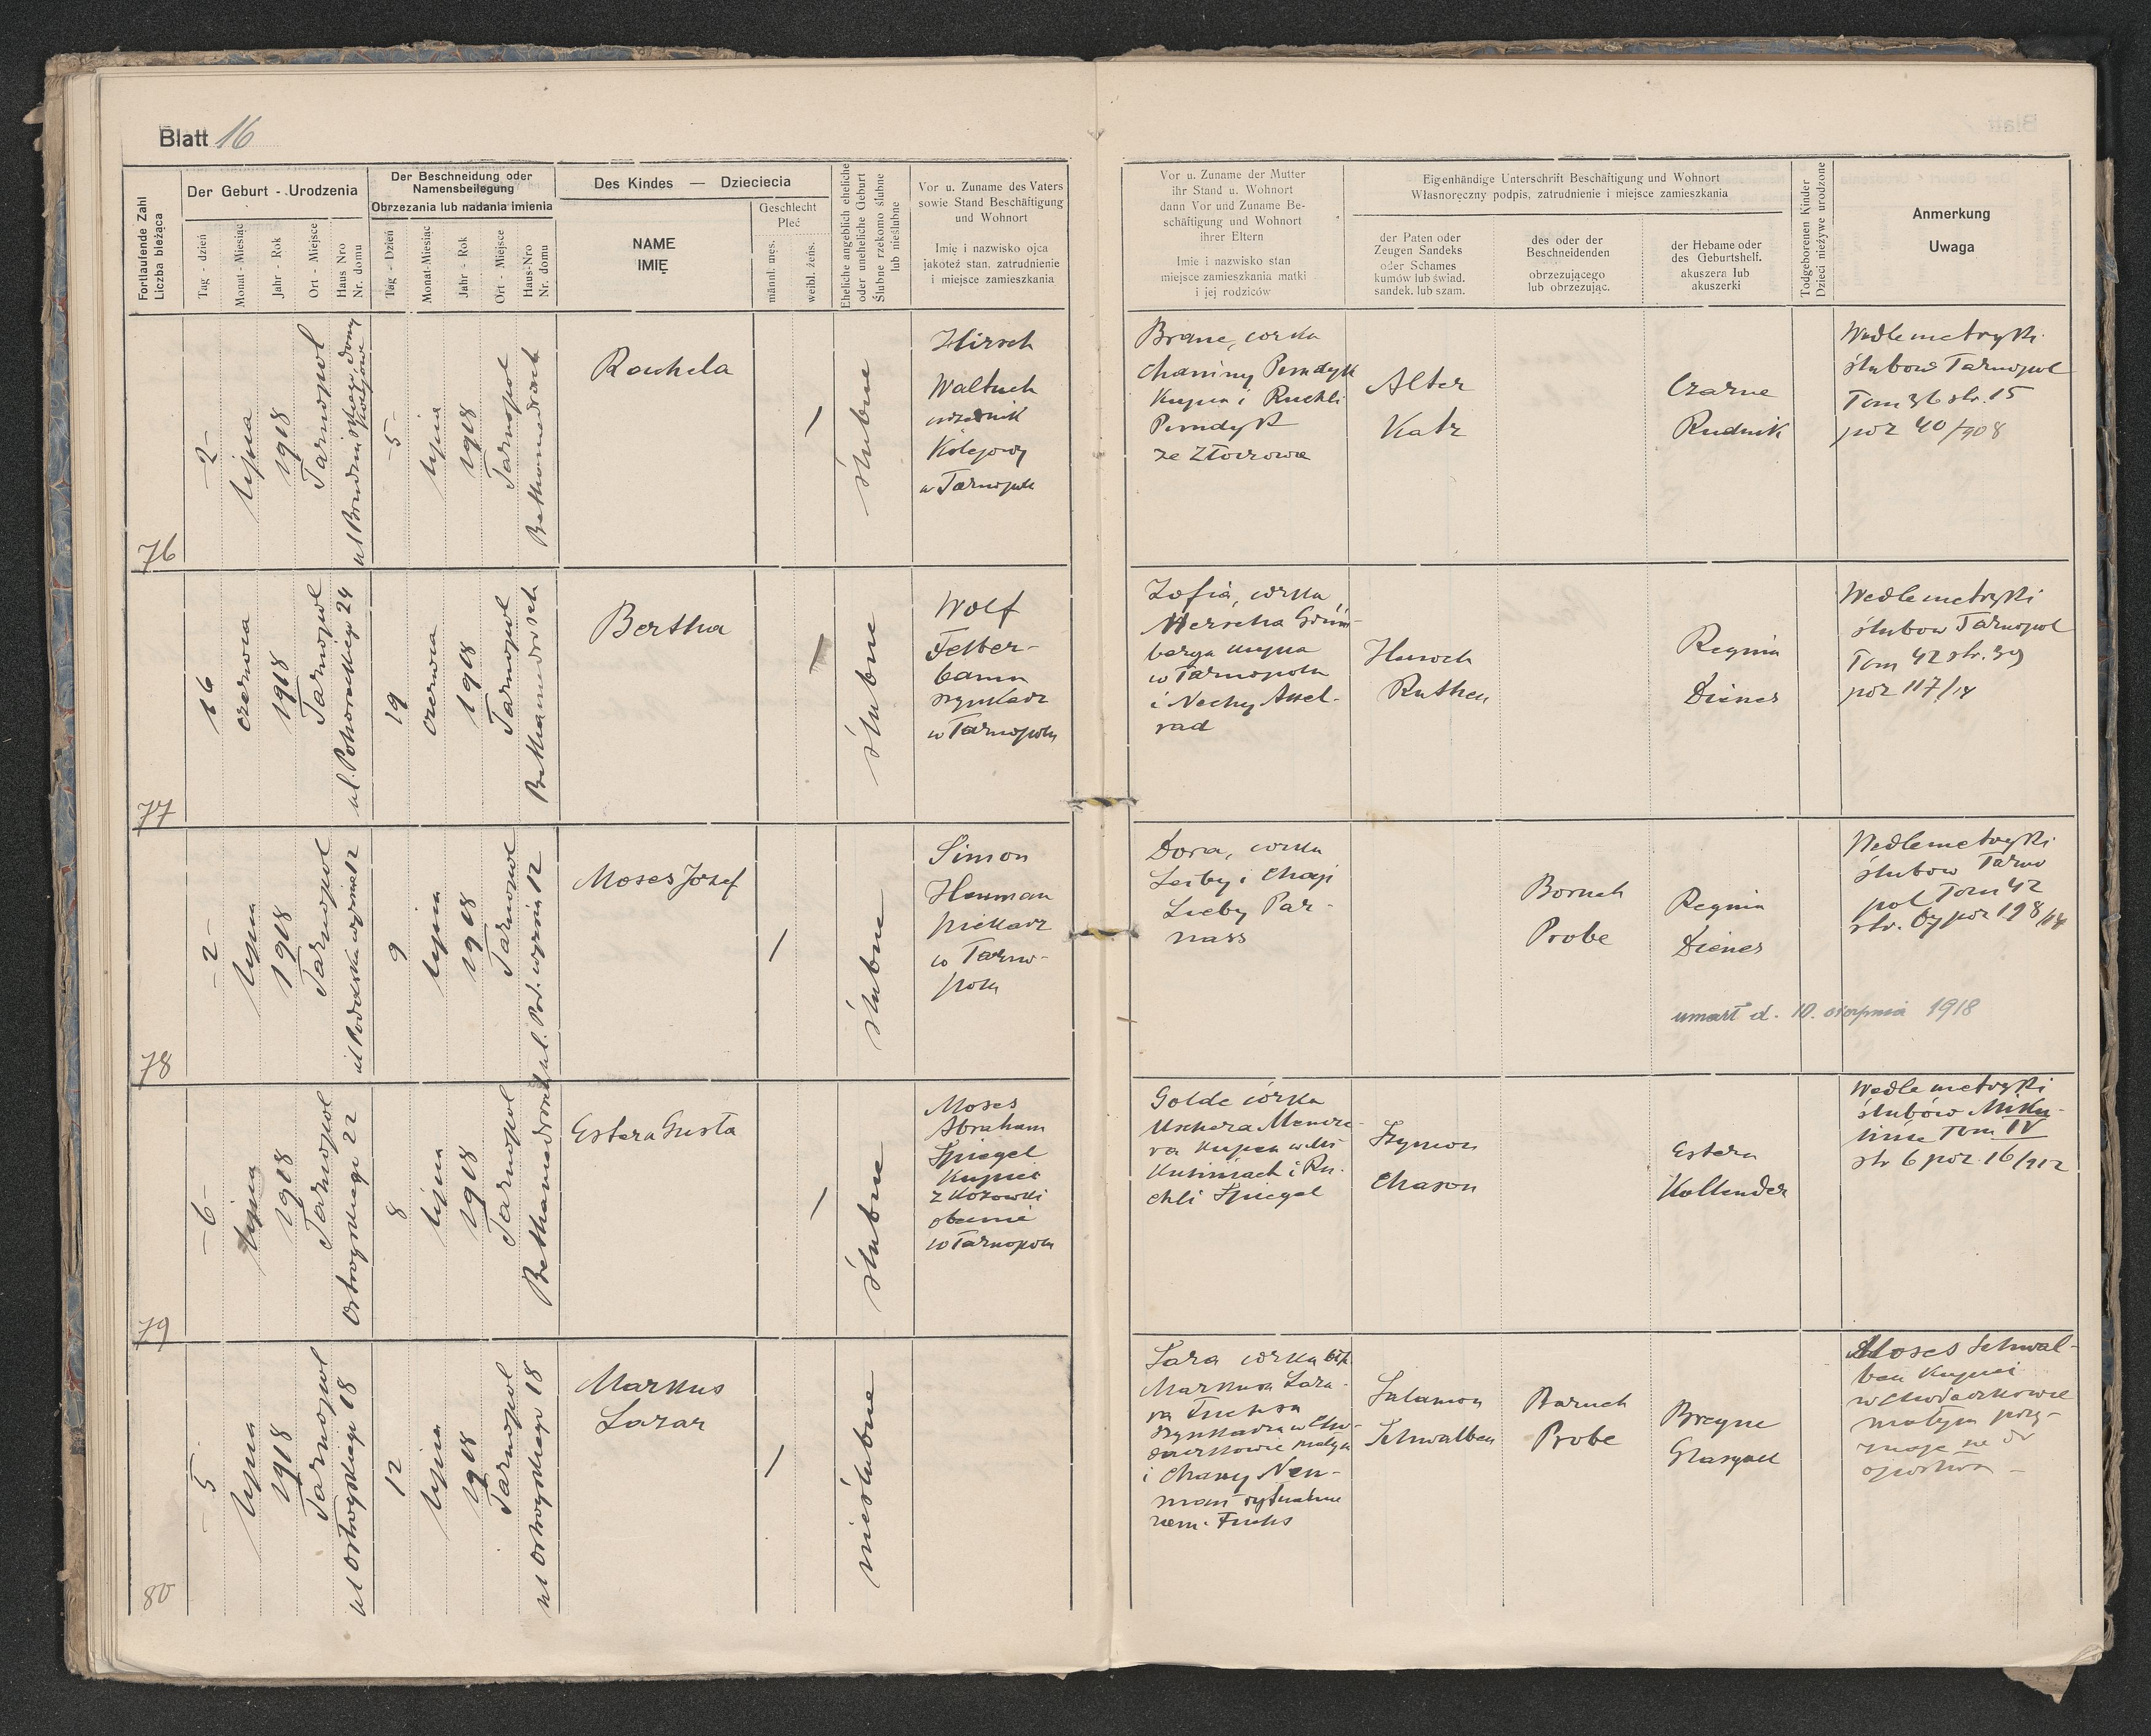 Blatt 16
Fortlaufende Zahl
Liczba bieżąca
Der Geburt - Urodzenia
Tag - dzień
Monat - Miesiąc
Jahr - Rok
Ort - Miejsce
Haus Nro
Nr. domu
Der Beschneidung oder
Namensbeilegung
Obrzezania lub nadania imienia
Tag - Dzień
Monat-Miesiąc
Jahr - Rok
Ort - Miejsce
Haus-Nro
Nr. domu
Des Kindes — Dzieciecia
NAME
IMIĘ
Geschlecht
Płeć
männl. męs.
weibl. żeńs.
Eheliche angeblich eheliche
oder uneheliche Geburt
Ślubne rzekomo ślubne
lub nieślubne
Vor u. Zuname des Vaters
sowie Stand Beschäftigung
und Wohnort
Imię i nazwisko ojca
jakoteż stan, zatrudnienie
i miejsce zamieszkania
Vor u. Zuname der Mutter
ihr Stand u. Wohnort
dann Vor und Zuname Be-
schäftigung und Wohnort
ihrer Eltern
Imie i nazwisko stan
miejsce zamieszkania matki
i jej rodziców
Eigenhändige Unterschrift Beschäftigung und Wohnort
Własnoręczny podpis, zatrudnienie i miejsce zamieszkania
der Paten oder
Zeugen Sandeks
oder Schames
kumów lub świad.
sandek. lub szam.
des oder der
Beschneidenden
obrzezującego
lub obrzezując.
der Hebame oder
des Geburtshelf.
akuszera lub
akuszerki
Todgeborenen Kinder
Dzieci nieżywe urodzone
Anmerkung
Uwaga
76
-2-
lipca
1918
Tarnopol
-5-
lipca
1918
Tarnopol
Bethamedrasch
Rachela
/
ślubne
Hirsch
Waltuch
urzędnik
Kolejowy
w Tarnopolu
Brane, corka
Chaniny Pundyk
Kupca i Ruchli
Pundyk
ze Złoczowa
Alter
Katz
Czarne
Rudnik
Wedle metryki
ślubow Tarnopol
Tom 36 str. 15
poz 40/908
77
16
czerwca
1918
Tarnopol
19
czerwca
1918
Tarnopol
Bethamedrasch
Bertha
/
ślubne
Wolf
Felber-
baum
szynkarz
w Tarnopolu
Zofia, corka
Herscha Grün-
berga kupca
w Tarnopolu
i Nechy Axel-
rad
Ruthen
Regina
Dienes
Wedle metryki
ślubow Tarnopol
Tom 42 str. 39
poz 117/14
78
-2-
lipca
1918
Tarnopol
9
lipca
1918
Tarnopol
Moses Jozef
/
ślubne
Simon
Heuman
piekarz
w Tarno-
polu
Dora, corka
Leiby i Chaji
Lieby Par-
nass
Boruch
Probe
Regina
Dienes
Wedle metryki
ślubow Tarno
pol Tom 42
str. 67 poz 198/14
umarł d. 10. sierpnia 1918
79
-6-
lipca
1918
Tarnopol
Ostrogskiego 22
8
lipca
1918
Tarnopol
Bethamedrasch
Estera Gusta
/
ślubne
Moses
Abraham
Spiegel
Kupiec
z Kozowki
obecnie
w Tarnopolu
Golde córka
Uschera
Kupca w Mi
kulińcach i Ru-
chli Spiegel
Szymon
Chason
Estera
Kollender
Wedle metryki
ślubów Miku-
liniec Tom IV
str 6 poz. 16/912
80
-5-
lipca
1918
Tarnopol
ul Ostrogskiego 18
12
lipca
1918
Tarnopol
ul Ostrogskiego 18
Markus
Lazar
/
nieślubne
Sara corka
Markusa Laza-
ra Fuchsa
szynkarza w Cho-
daczkowie małym
i Chany Neu-
man rytualnie
zam. Fuchs
Salamon
Schwalben
Baruch
Probe
Breyne
Glasgall
Moses Schwal-
ben Kupiec
w Chodaczkowie
małym przy-
znaje się do
ojcostwa -